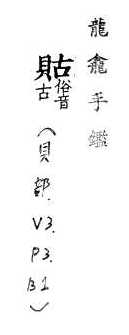 龍龕手鑑
俗音
古
(貝部.V3.P3.B1)